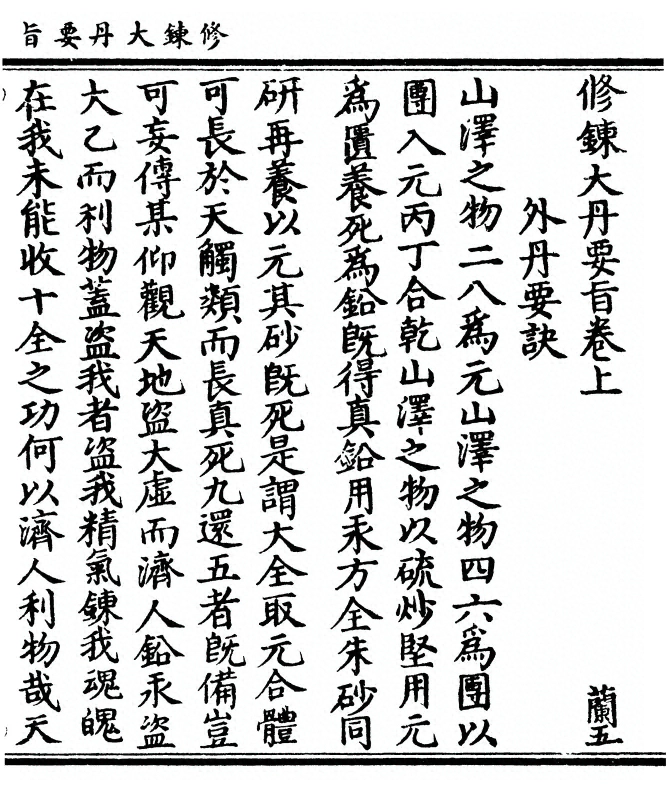 修鍊大丹要旨
修鍊大丹要旨卷上
蘭五
外丹要訣
山澤之物二八爲元山澤之物四六爲團以
團入元丙丁合乾山澤之物以硫炒堅用元
爲匱養死爲鉛旣得真鉛用汞方全朱砂同
研再養以元其砂旣死是謂大全取元合體
可長於天觸類而長真死九還五者旣備豈
可妄傳某仰觀天地盜大虛而濟人鉛汞盜
大乙而利物蓋盜我者盜我精氣鍊我魂魄
在我未能收十全之功何以濟人利物哉天